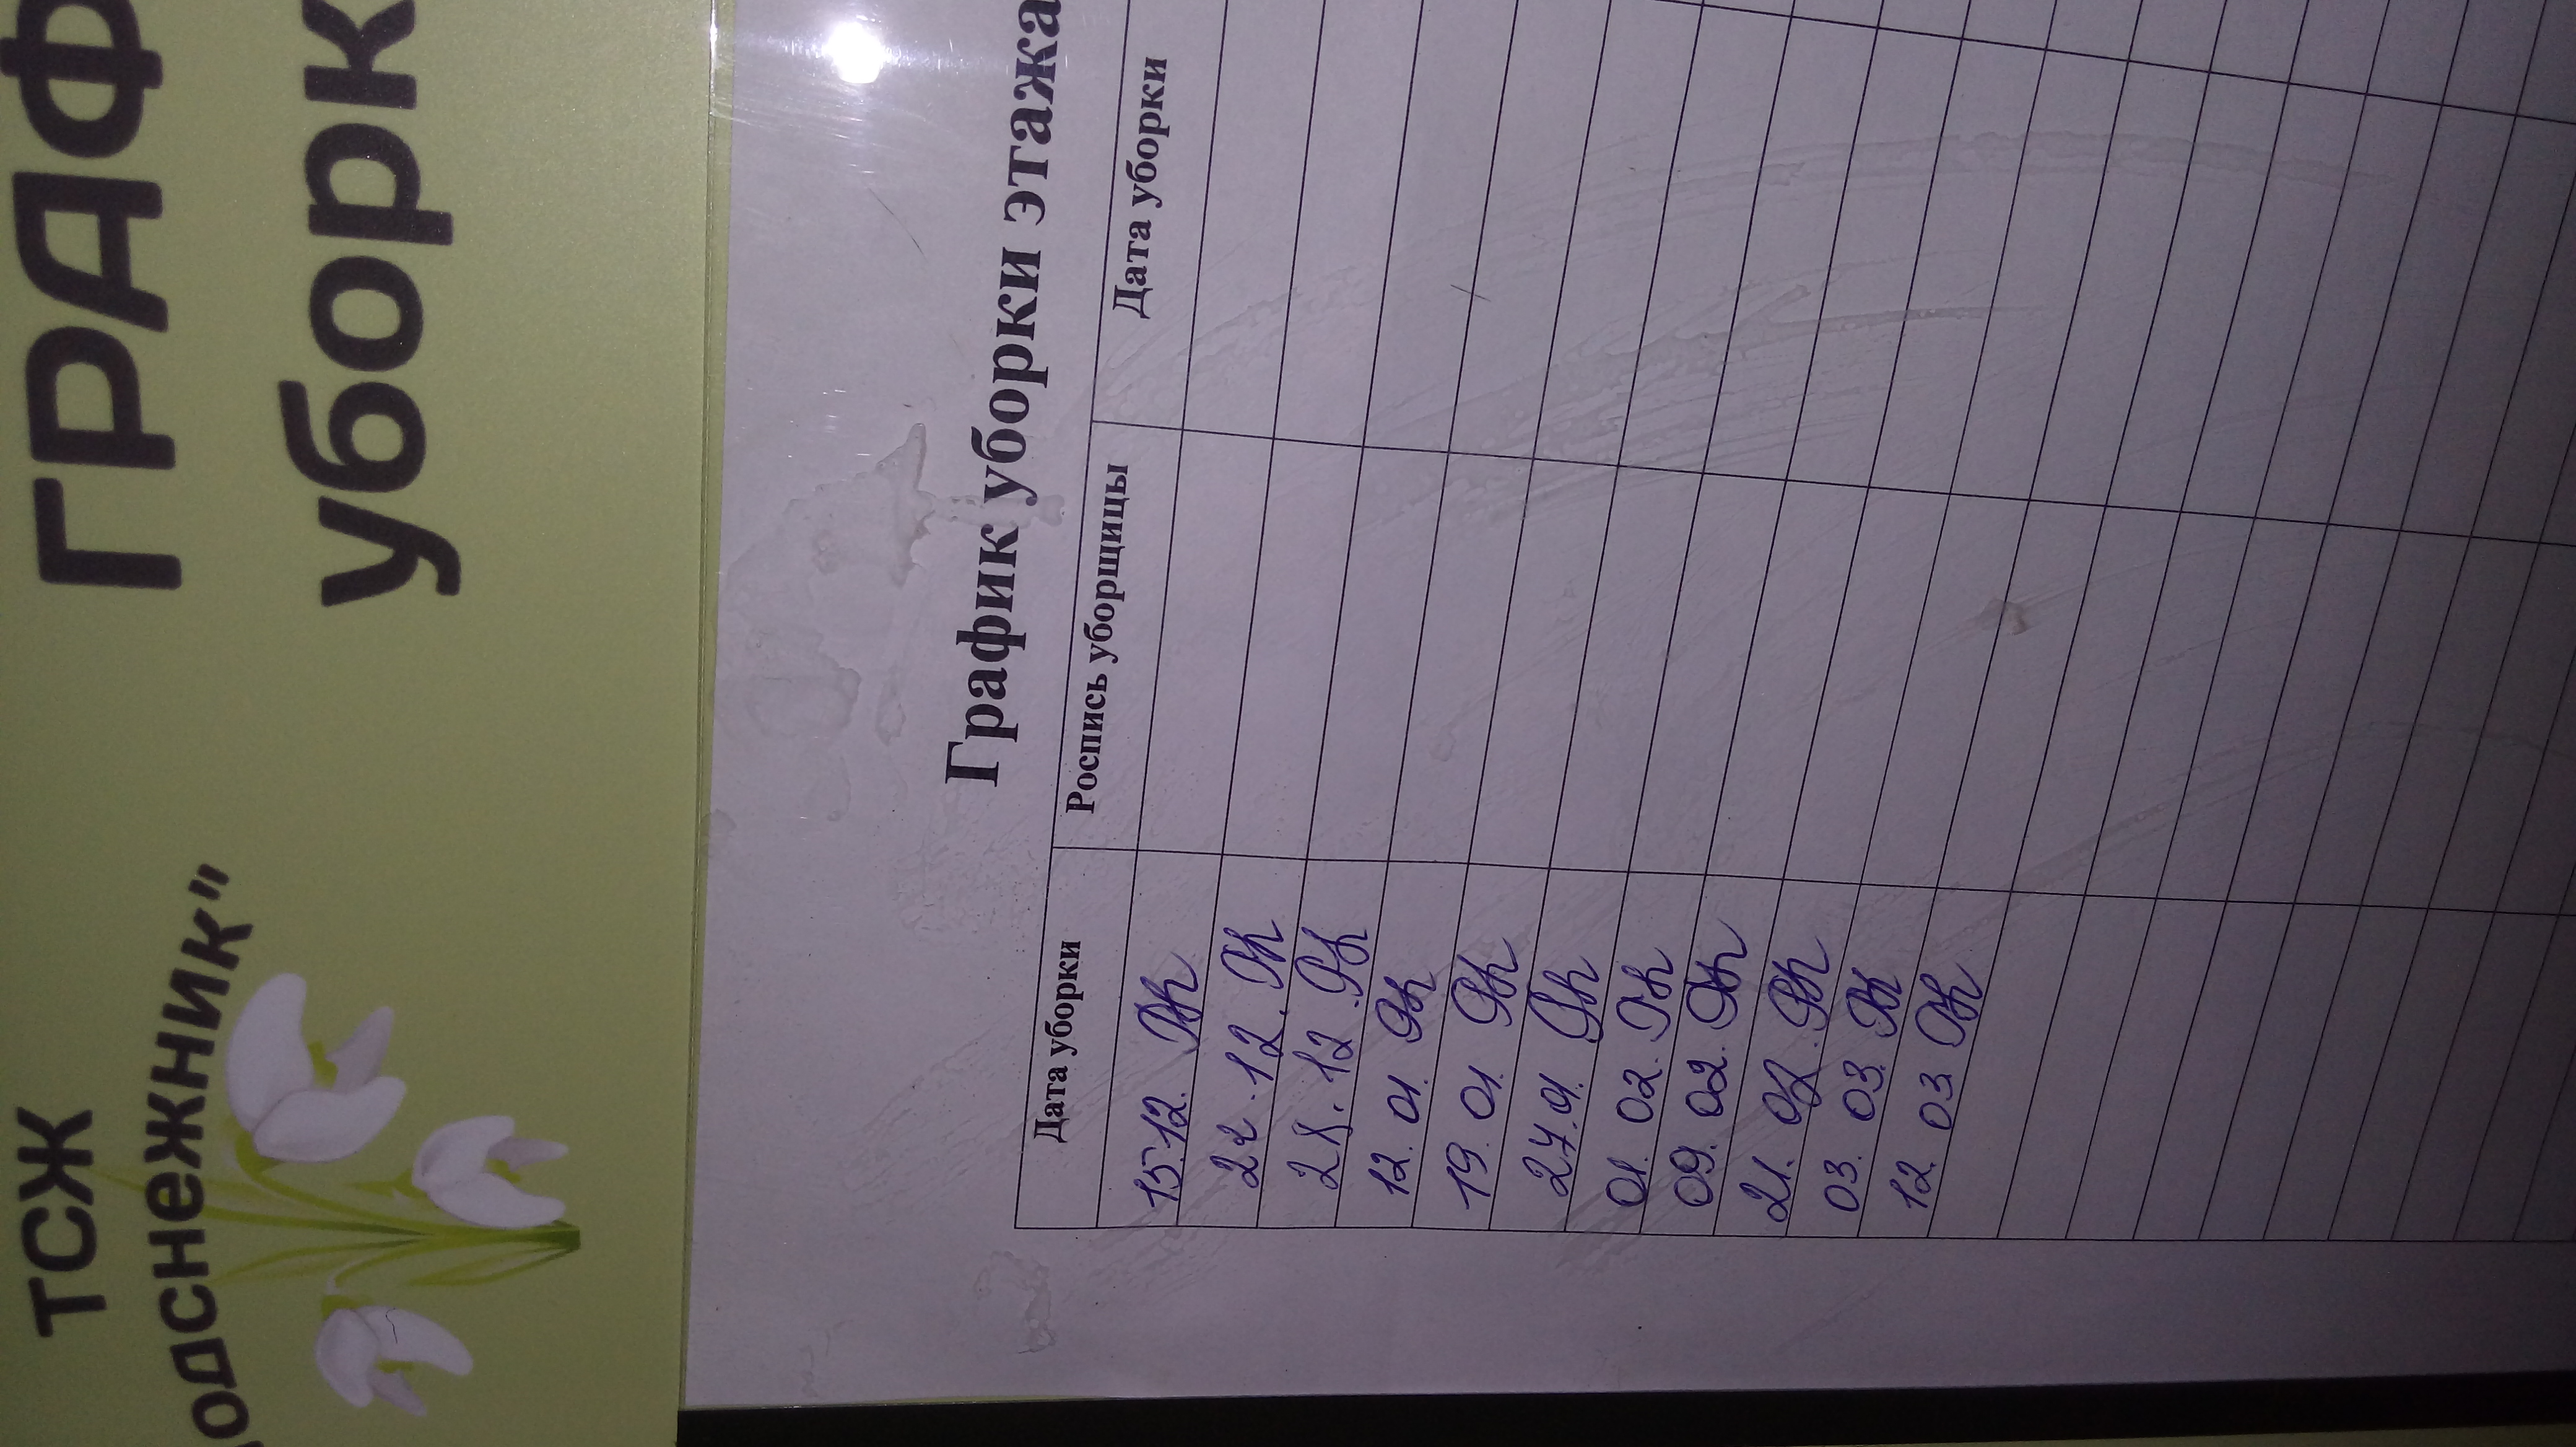 ТСЖ
одснежник"
ГРАФ
уборк
График уборки этажа
Дата уборки Роспись уборщицы Дата уборки
15.12.
22.12.
28.12.
12.01.
19.01.
27.01.
01.02.
09.02.
21.02.
03.03.
12.03.